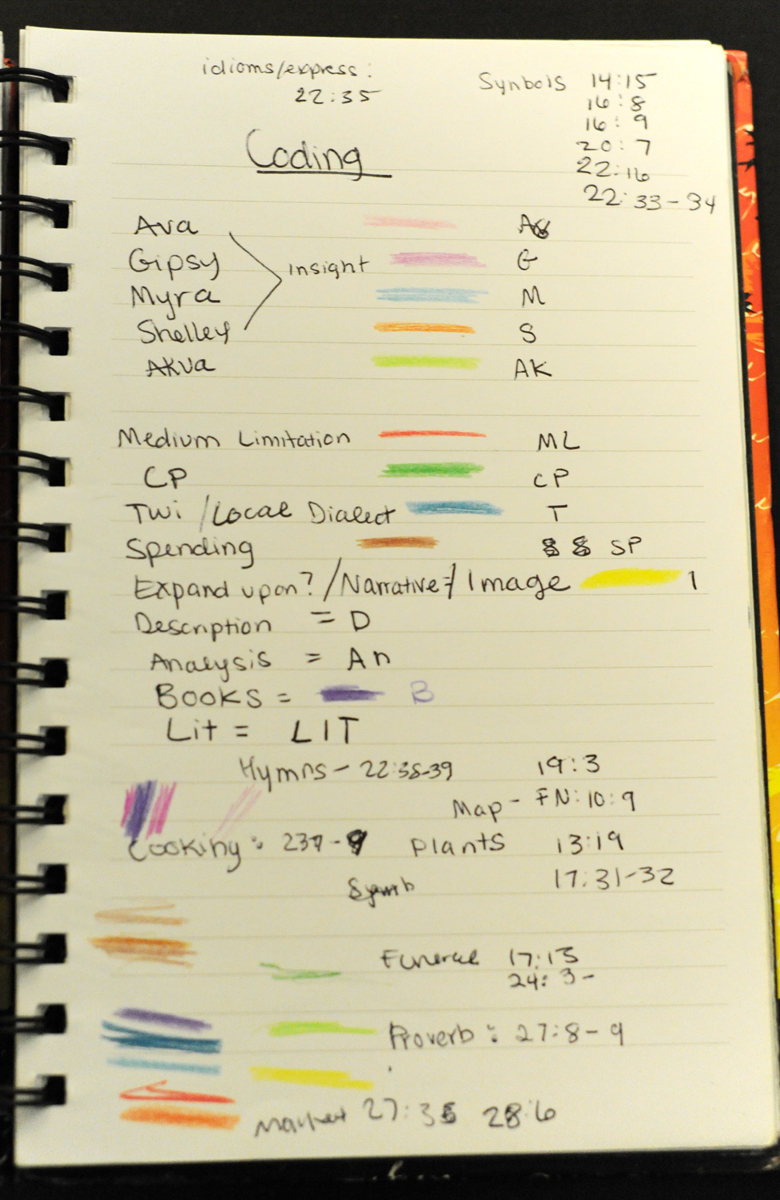 idioms/express:
22:35
Synbols 14:15
16:8
16:9
20:7
22:16
22:33-34
Coding
Ava
Gipsy insight G
Myra M
Shelley S
Akua AK
Medium Limitation ML
CP CP
Twi /Local Dialect T
Spending SP
Expand upon? /Narrative/Image 1
Description = D
Analysis = An
Books = B
Lit = LIT
Hymns - 22:38-39 19:3
Map - FN:10:9
Cooking: 237-9 Plants 13:19
Symb 17:31-32
Funeral 17:13
24:3-
Proverb: 27:8-9
Market 27:35 28:6